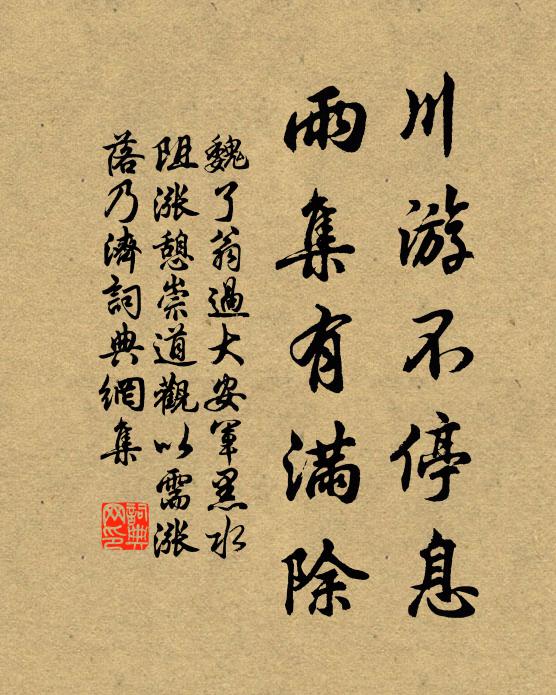 川游不停息
雨集有满除
魏了翁過大安軍黑水
阻漲憩崇道觀以需漲
落乃濟詞典網集
詞典
网印